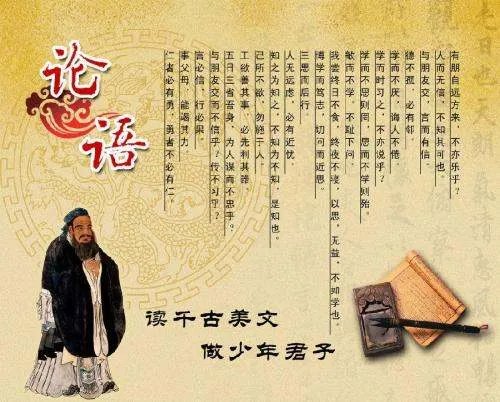 论语
有朋自远方来，不亦乐乎？
人而无信，不知其可也。
与朋友交，言而有信。
德不孤，必有邻。
学而不厌，诲人不倦。
学而时习之，不亦说乎？
学而不思则罔，思而不学则殆。
敏而不学，不耻下问。
我尝终日不食，终夜不寝，以思，无益，不如学也。
博学而笃志，切问而近思。
三思而后行
人无远虑，必有近忧。
知之为知之，不知为不知，是知也。
己所不欲，勿施于人。
工欲善其事，必先利其器
五日三省吾身，为人谋而不忠乎？
与朋友交而不信乎？传不习乎？
言必信，行必果。
事父母，能竭其力。
仁者必有勇，勇者不必有仁。
读千古美文
做少年君子